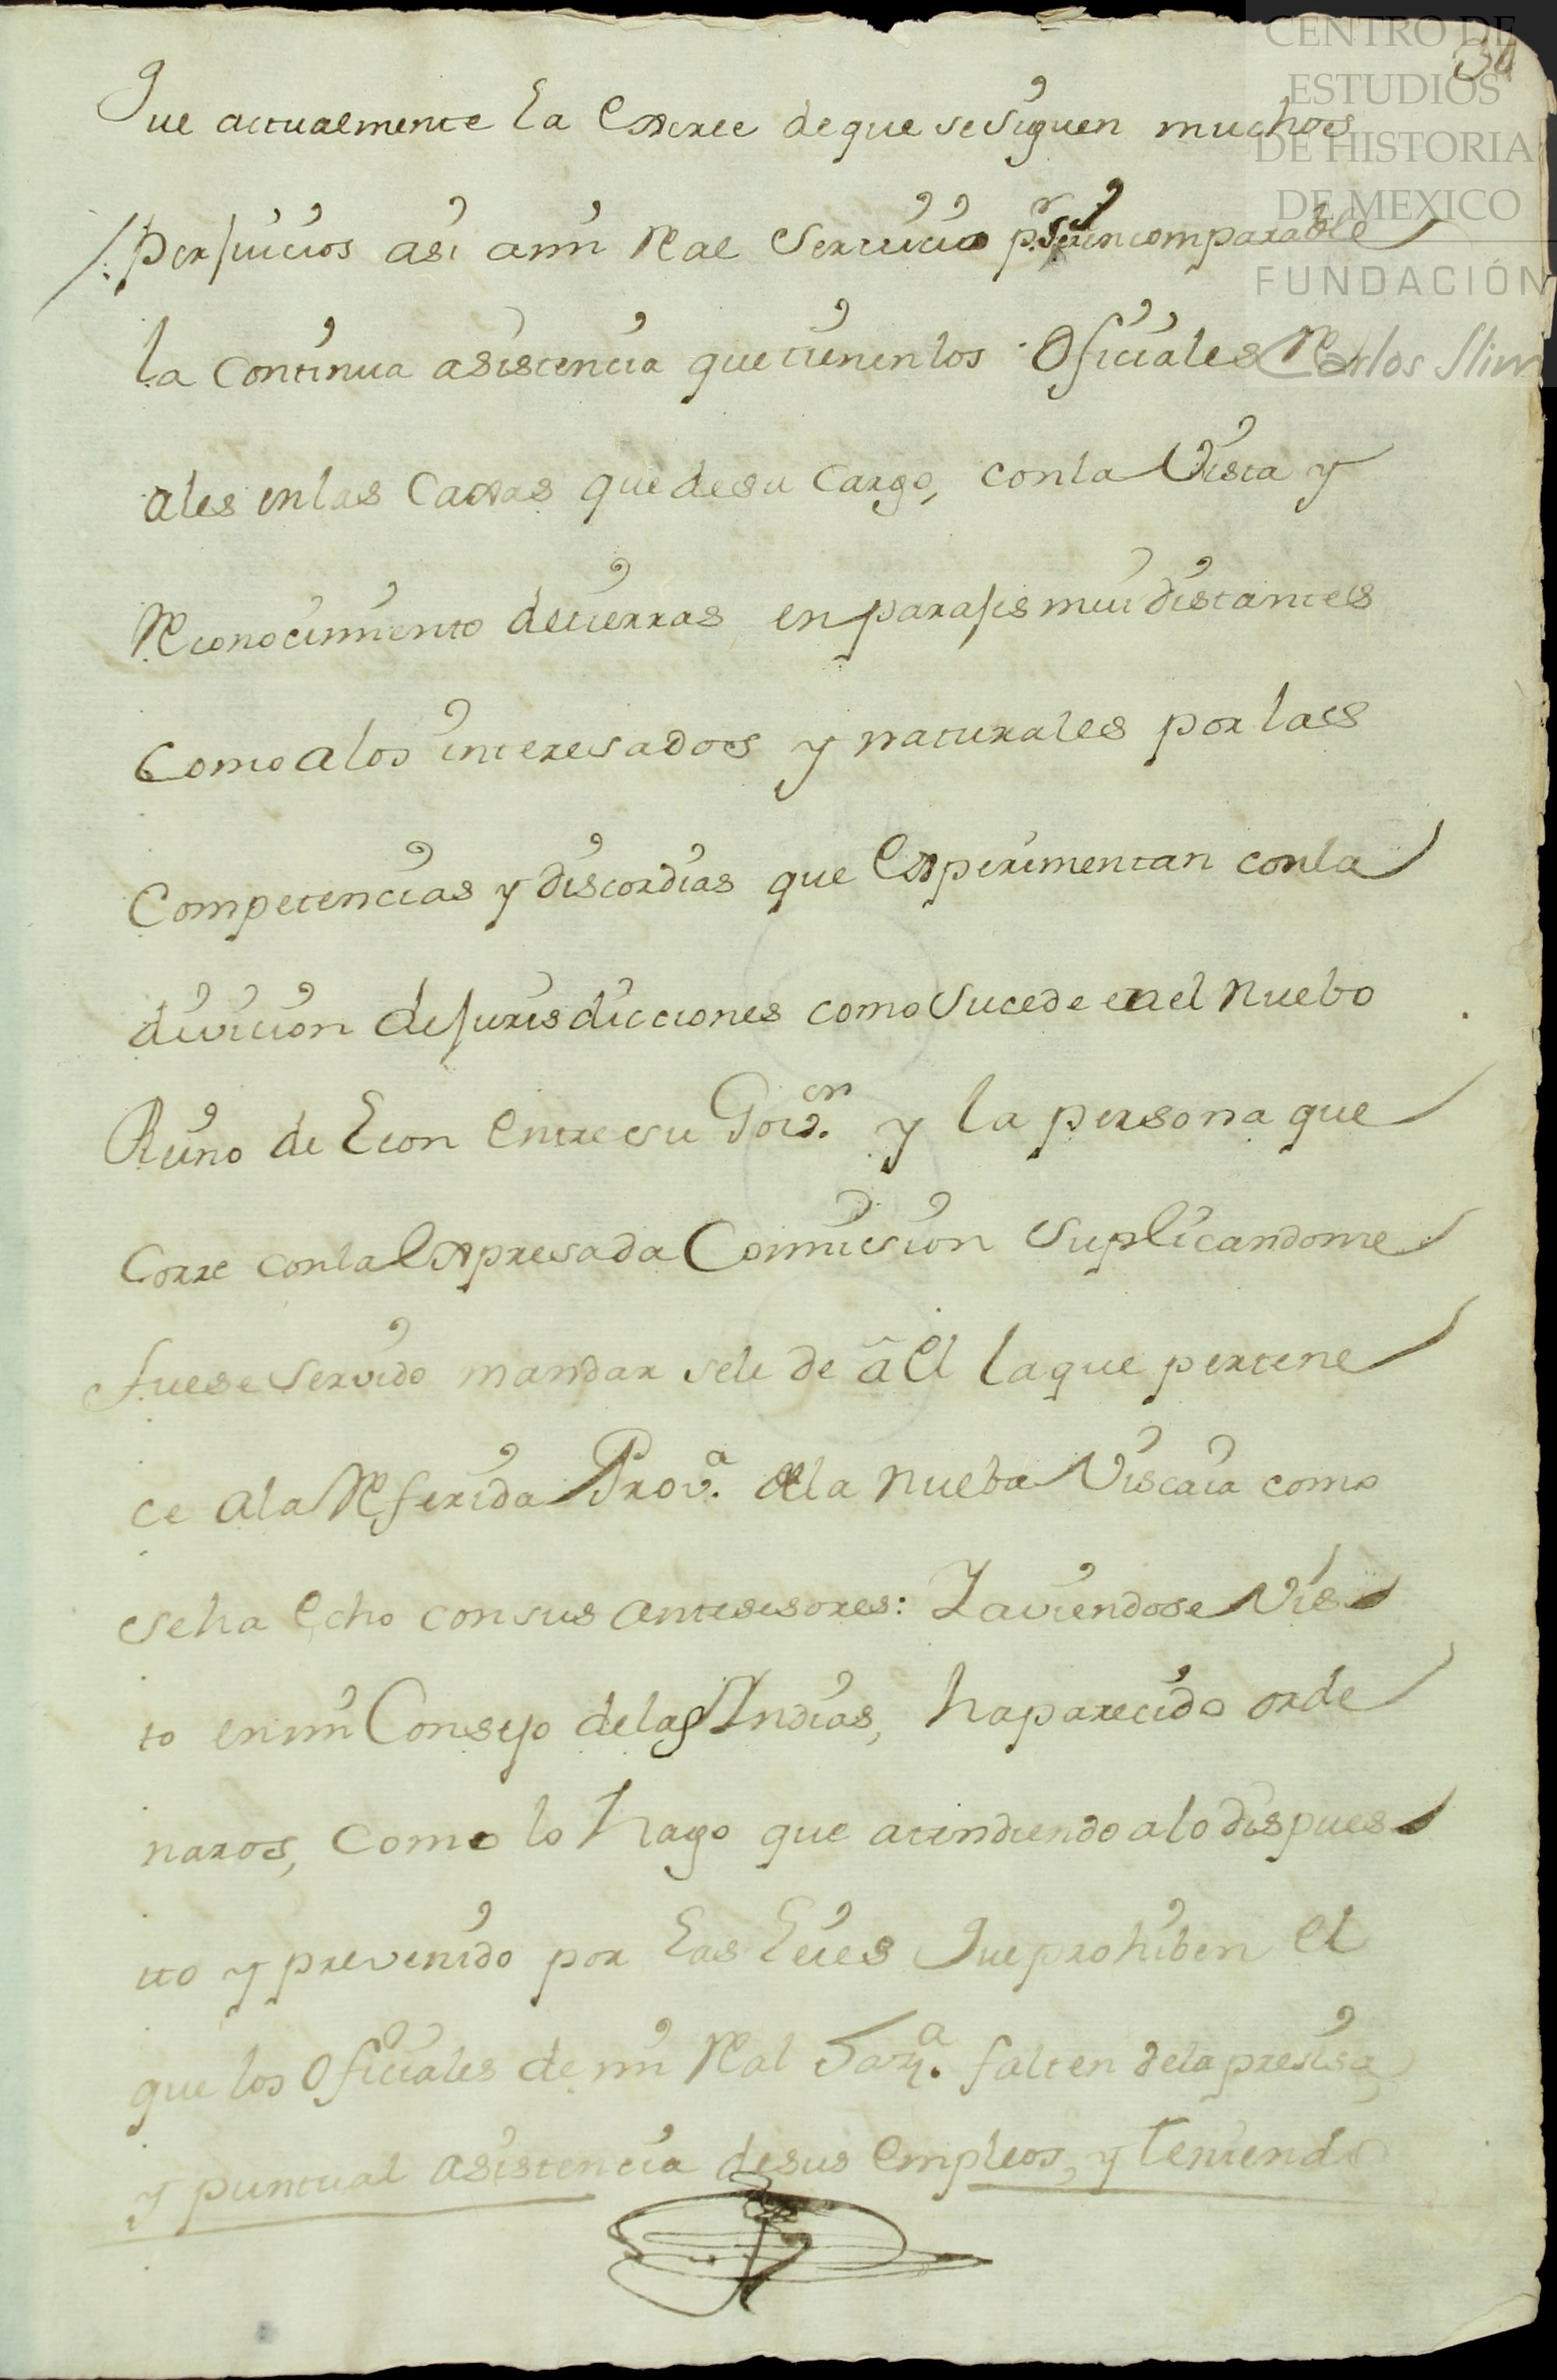 CENTRO DE
ESTUDIOS
DE HISTORIA
DE MEXICO
FUNDACIÓN
Carlos Slim
34
Que actualmente la Exerce de que se siguen muchos
perjuicios asi a mi Real Servicio p.r ser incomparable
la continua asistencia que tienen los Oficiales Re
ales en las Caxas que de su cargo, con la Vista y
Reconocimiento de tierras en parajes mui distantes
como a los interesados y naturales por las
Competencias y discordias que Experimentan con la
divicion de jurisdicciones como sucede en el Nuebo
Reino de Leon entre su Gov.on y la persona que
Corre con la Expresada Comicsion suplicandome
fuese servido mandar sele de â el la que pertene
ce a la Referida Prov.a de la Nueba Viscaia como
se ha echo con sus antesesores: Y aviendose Vis
to en mi Consejo de las Indias, ha parecido orde
naros, como lo hago que atendiendo a lo dispues
tto y prevenido por Las Leies Que prohiben el
que los Oficiales de mi Real Haz.a falten de la presisa
y puntual asistencia de sus Empleos, y teniendo